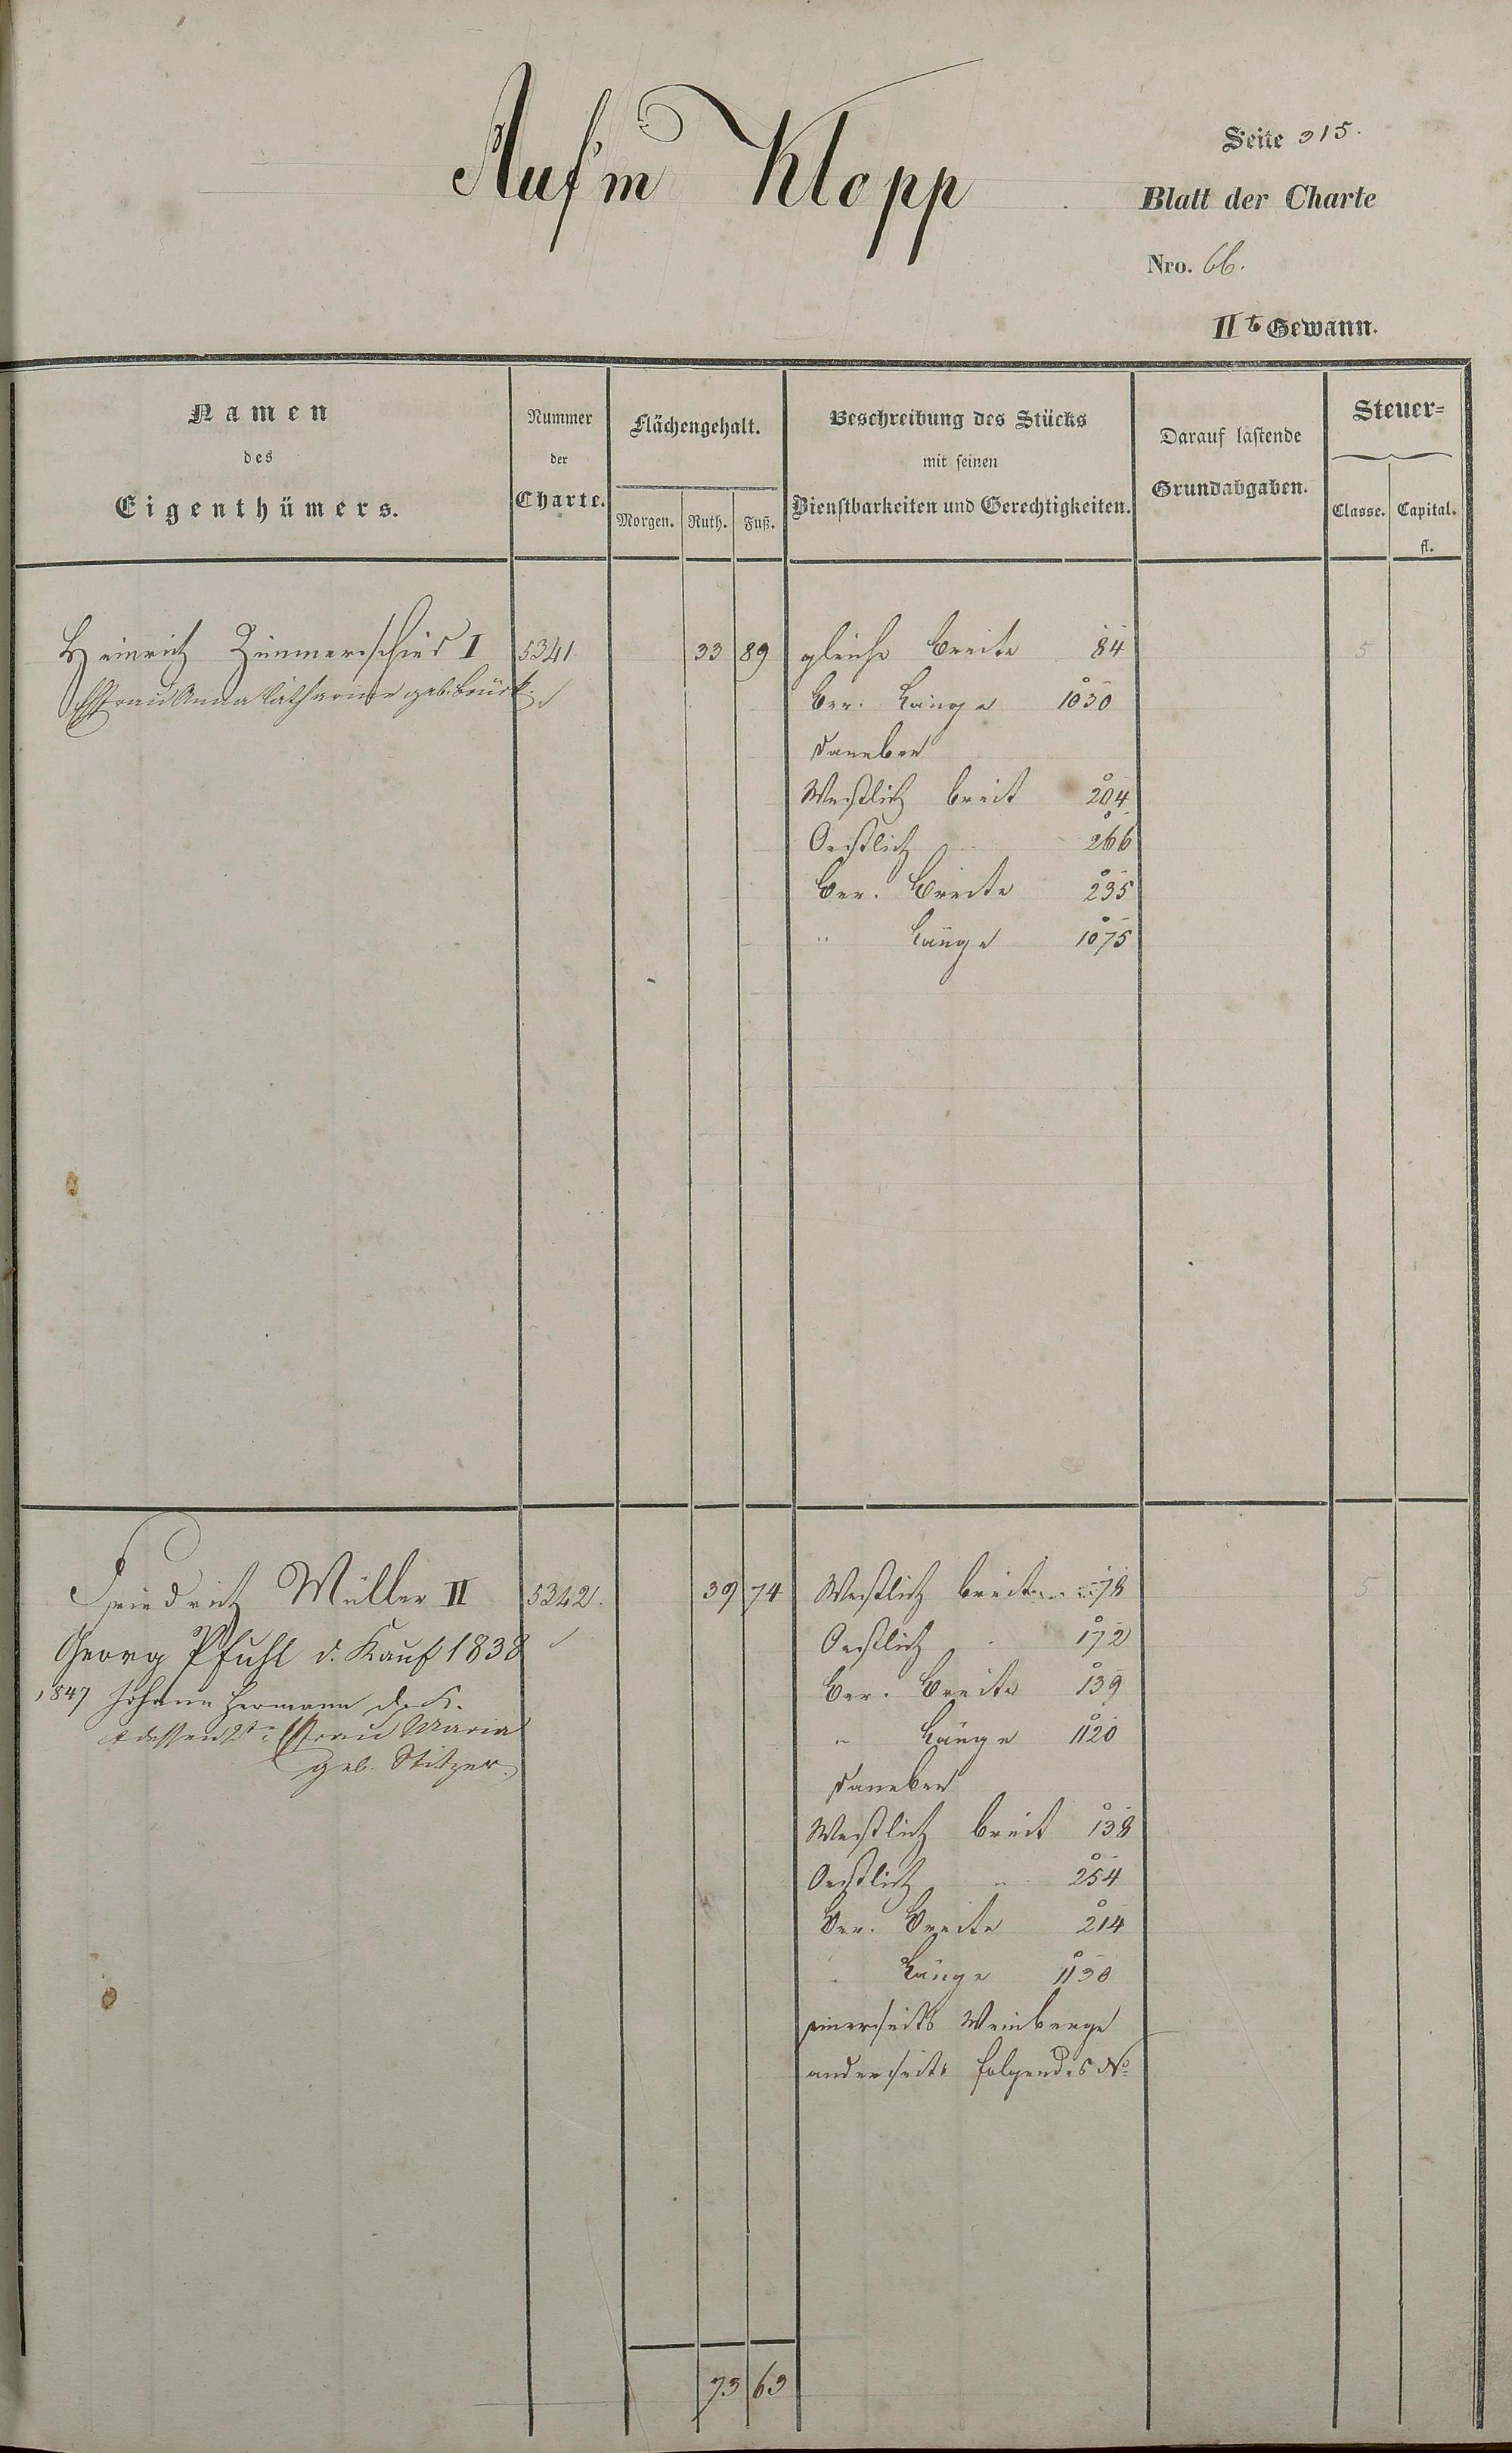 Auf'm Klopp
Seite 315.
Blatt der Charte
Nro. 66.
IIte Gewann.
Namen
des
Eigenthümers.
Nummer
der
Charte.
Flächengehalt.
Morgen. Ruth. Fuß.
Beschreibung des Stücks
mit seinen
Dienstbarkeiten und Gerechtigkeiten.
Darauf lastende
Grundabgaben.
Steuer=
Classe. Capital.
fl.
Heinrich Zimmerschied I 5341 33 89 gleiche Breite 84 5
Ehfrau Anna Catharine geb. Brück
Ber. Länge 1030
Daneben
Westlich breit 204
Oestlich 266
Ber. Breite 235
" Länge 1075
Friedrich Müller II 5342. 39 74 Westlich breit 78 5
Georg Pfuhl d. Kauf 1838
Oestlich 172
1847 Johann Hermann d. K.
Ber. Breite 139
& dessen 2te Ehfrau Maria
" Länge 1120
geb. Stitzer.
Daneben
Westlich breit 138
Oestlich " 254
Ber. Breite 214
" Länge 1130
einerseits Weinberge
anderseits folgendes No
73 63